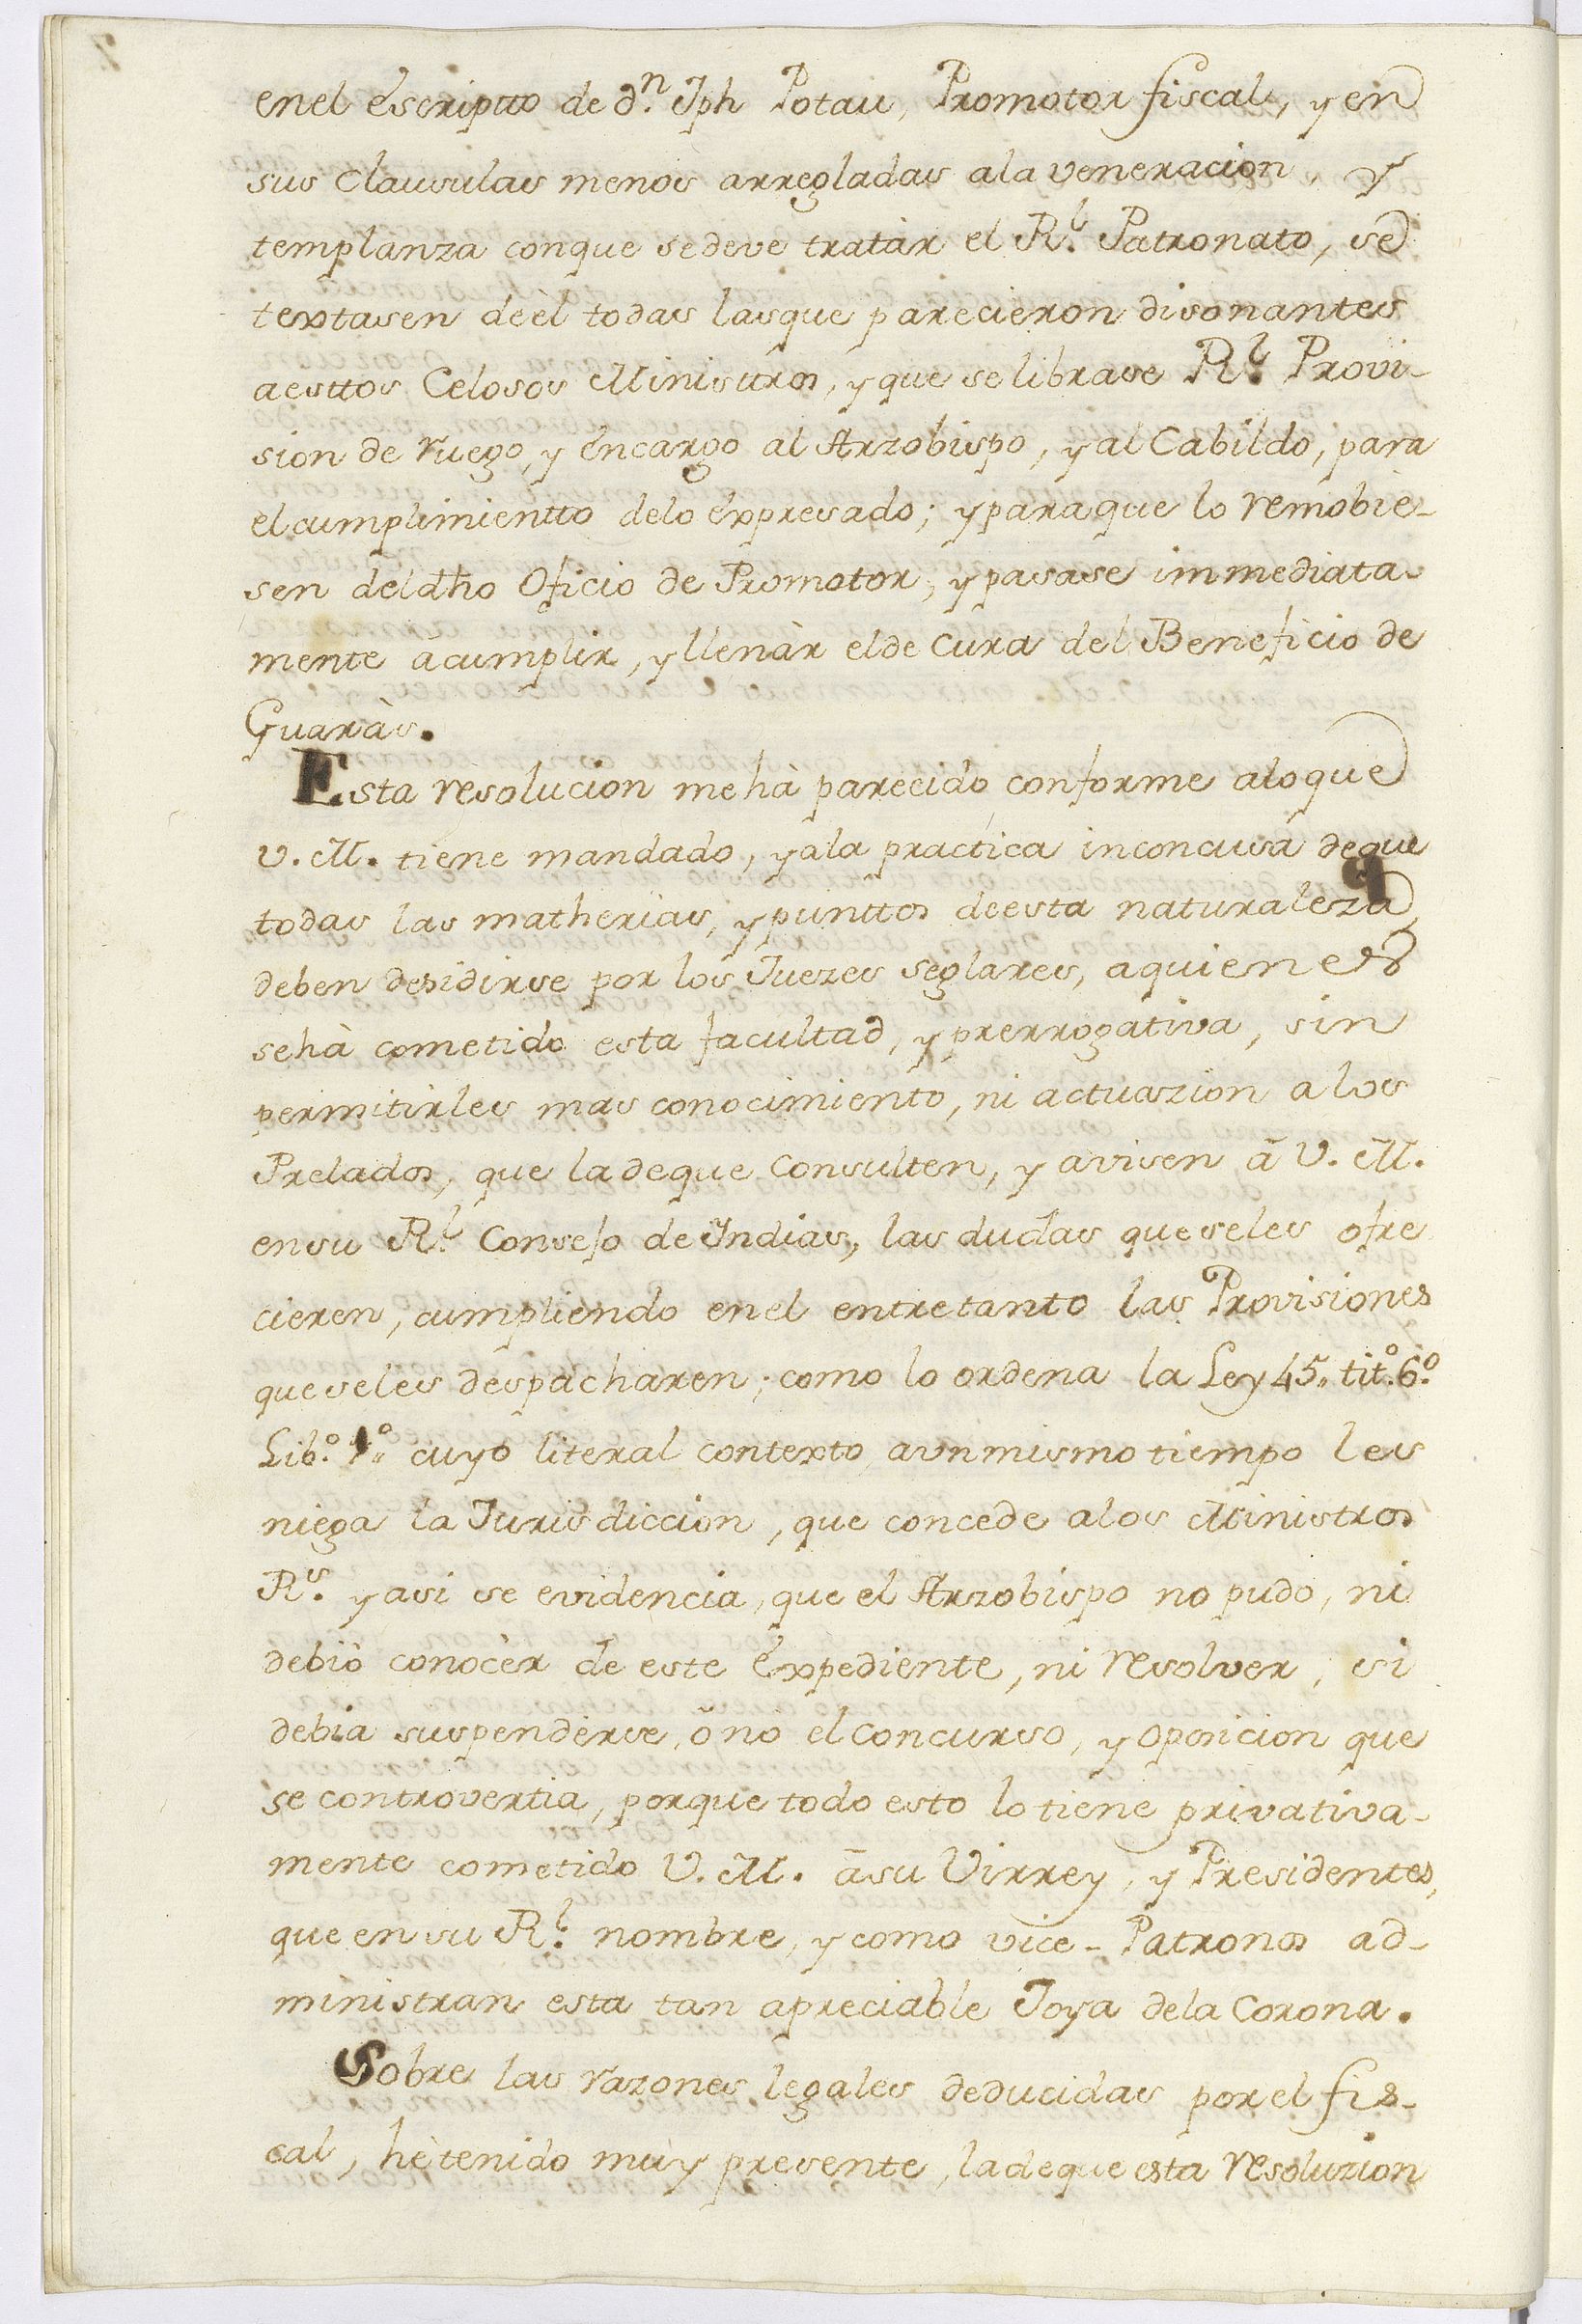 enel escriptto de dn. Jph Potau, Promotor fiscal, y en
sus Clausulas menos arregladas ala veneracion, y
templanza conque sedeve tratàr el Rl. Patronato, se
textasen deèl todas lasque parecieron disonantes
aesttos Celosos Ministtros, y que se librase Rl. Provi-
sion de ruego, y encargo al Arzobispo, y al Cabildo, para
el cumplimientto delo expresado; y paraque lo remobie-
sen deldho Oficio de Promotor, y pasase immediata-
mente ácumplir, y llenàr elde Cura del Beneficio de
Guaràs.
Esta resolucion mehà parecido conforme aloque
V. M. tiene mandado, yala practica inconcusa deque
todas las matherias, y punttos deesta naturaleza,
deben desidirse por los Juezes seglares, aquienes
sehà cometido esta facultad, y prerrogativa, sin
permitirles mas conocimiento, ni actuazion a los
Prelados, que ladeque Consulten, y avisen á V. M.
ensu Rl. Consejo de Yndias, las dudas queseles ofre
cieren, cumpliendo enel entretanto las Provisiones
queseles despacharen; como lo ordena la Ley 45. tito. 6o.
Libo. 1o. cuyo literal contexto, aunmismo tiempo les
niega la Jurisdiccion, que concede alos Ministros
Rs. y asi se evidencia, que el Arzobispo no pudo, ni
debiò conocèr de este Expediente, ni resolver, si
debia suspenderse, ó nò el concurso, y oposicion que
se controvertia, porque todo esto lo tiene privativa-
mente cometido V. M. ásu Virrey, y Presidentes,
que en su Rl. nombre, y como vice-Patronos ad-
ministran esta tan apreciable Joya dela Corona.
Sobre las razones legales deducidas por el fis-
cal, hè tenido muy presente, ladeque esta resoluzion